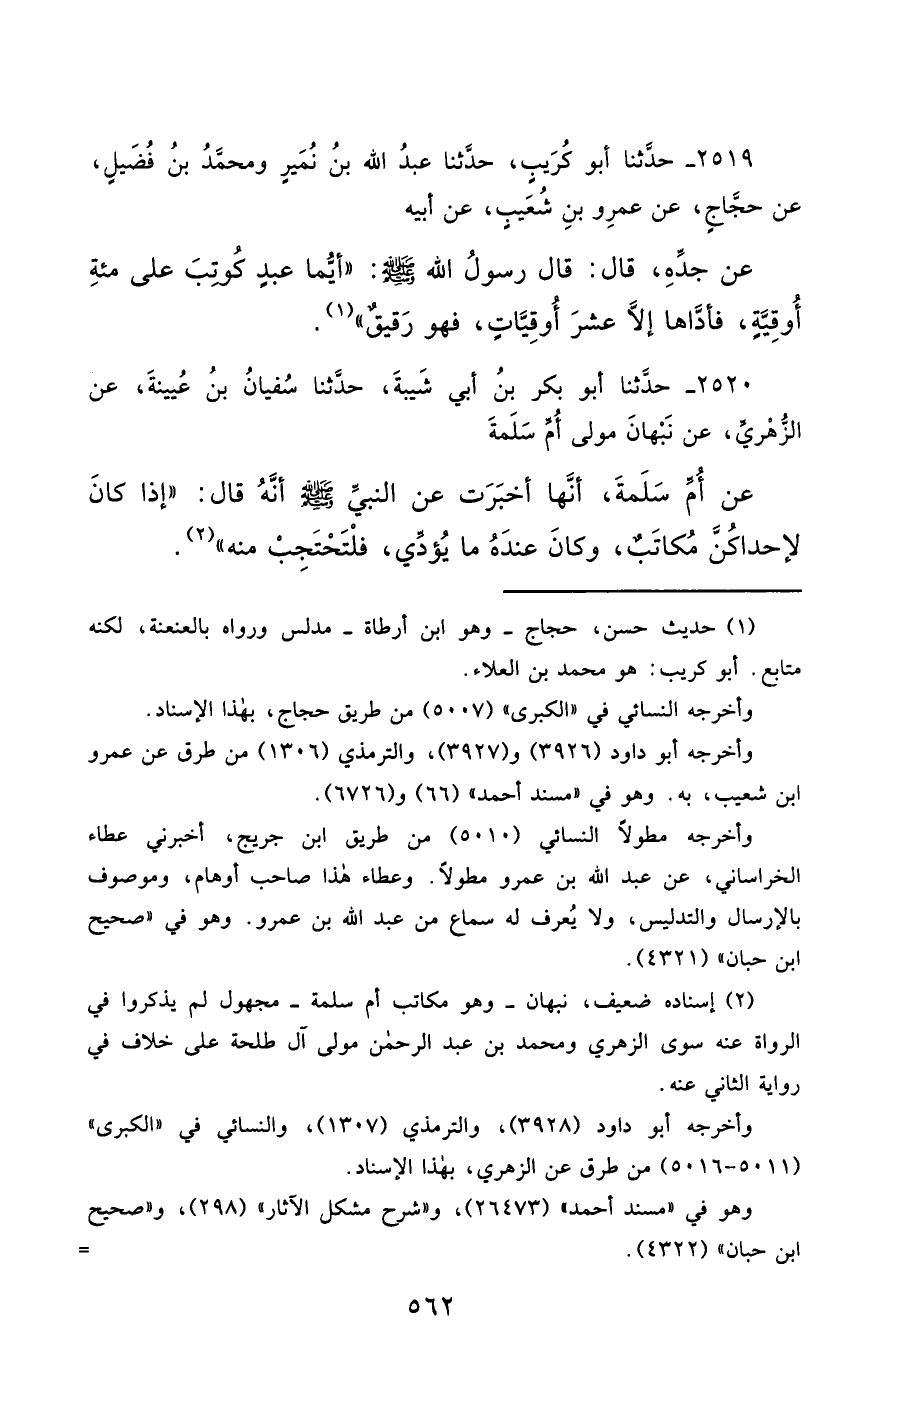 ٢٥١٩ـ حدَّثنا أبو كُرَيبٍ، حدَّثنا عبدُ الله بنُ نُمَيرٍ ومحمَّدُ بنُ فُضَيلٍ،
عن حجَّاجٍ، عن عمرِو بنِ شُعَيبٍ، عن أبيه
عن جدِّهِ، قال: قال رسولُ الله ﷺ: «أيُّما عبدٍ كُوتِبَ على مئةِ
أُوقِيَّةٍ، فأدَّاها إلاَّ عشرَ أُوقِيَّاتٍ، فهو رَقيقٌ»(١).
٢٥٢٠ـ حدَّثنا أبو بكر بنُ أبي شَيبةَ، حدَّثنا سُفيانُ بنُ عُيينةَ، عن
الزُّهْريِّ، عن نَبْهانَ مولى أُمِّ سَلَمةَ
عن أُمِّ سَلَمةَ، أنَّها أخبَرَت عن النبيِّ ﷺ أنَّهُ قال: «إذا كانَ
لإحداكُنَّ مُكاتَبٌ، وكانَ عندَهُ ما يُؤدِّي، فلْتَحْتَجِبْ منه»(٢).
(١) حديث حسن، حجاج ـ وهو ابن أرطاة ـ مدلس ورواه بالعنعنة، لكنه
متابع. أبو كريب: هو محمد بن العلاء.
وأخرجه النسائي في «الكبرى» (٥٠٠٧) من طريق حجاج، بهٰذا الإسناد.
وأخرجه أبو داود (٣٩٢٦) و(٣٩٢٧)، والترمذي (١٣٠٦) من طرق عن عمرو
ابن شعيب، به. وهو في «مسند أحمد» (٦٦) و(٦٧٢٦).
وأخرجه مطولاً النسائي (٥٠١٠) من طريق ابن جريج، أخبرني عطاء
الخراساني، عن عبد الله بن عمرو مطولاً. وعطاء هٰذا صاحب أوهام، وموصوف
بالإرسال والتدليس، ولا يُعرف له سماع من عبد الله بن عمرو. وهو في «صحيح
ابن حبان» (٤٣٢١).
(٢) إسناده ضعيف، نبهان ـ وهو مكاتب أم سلمة ـ مجهول لم يذكروا في
الرواة عنه سوى الزهري ومحمد بن عبد الرحمٰن مولى آل طلحة على خلاف في
رواية الثاني عنه.
وأخرجه أبو داود (٣٩٢٨)، والترمذي (١٣٠٧)، والنسائي في «الكبرى»
(٥٠١١-٥٠١٦) من طرق عن الزهري، بهٰذا الإسناد.
وهو في «مسند أحمد» (٢٦٤٧٣)، و«شرح مشكل الآثار» (٢٩٨)، و«صحيح
ابن حبان» (٤٣٢٢). =
٥٦٢